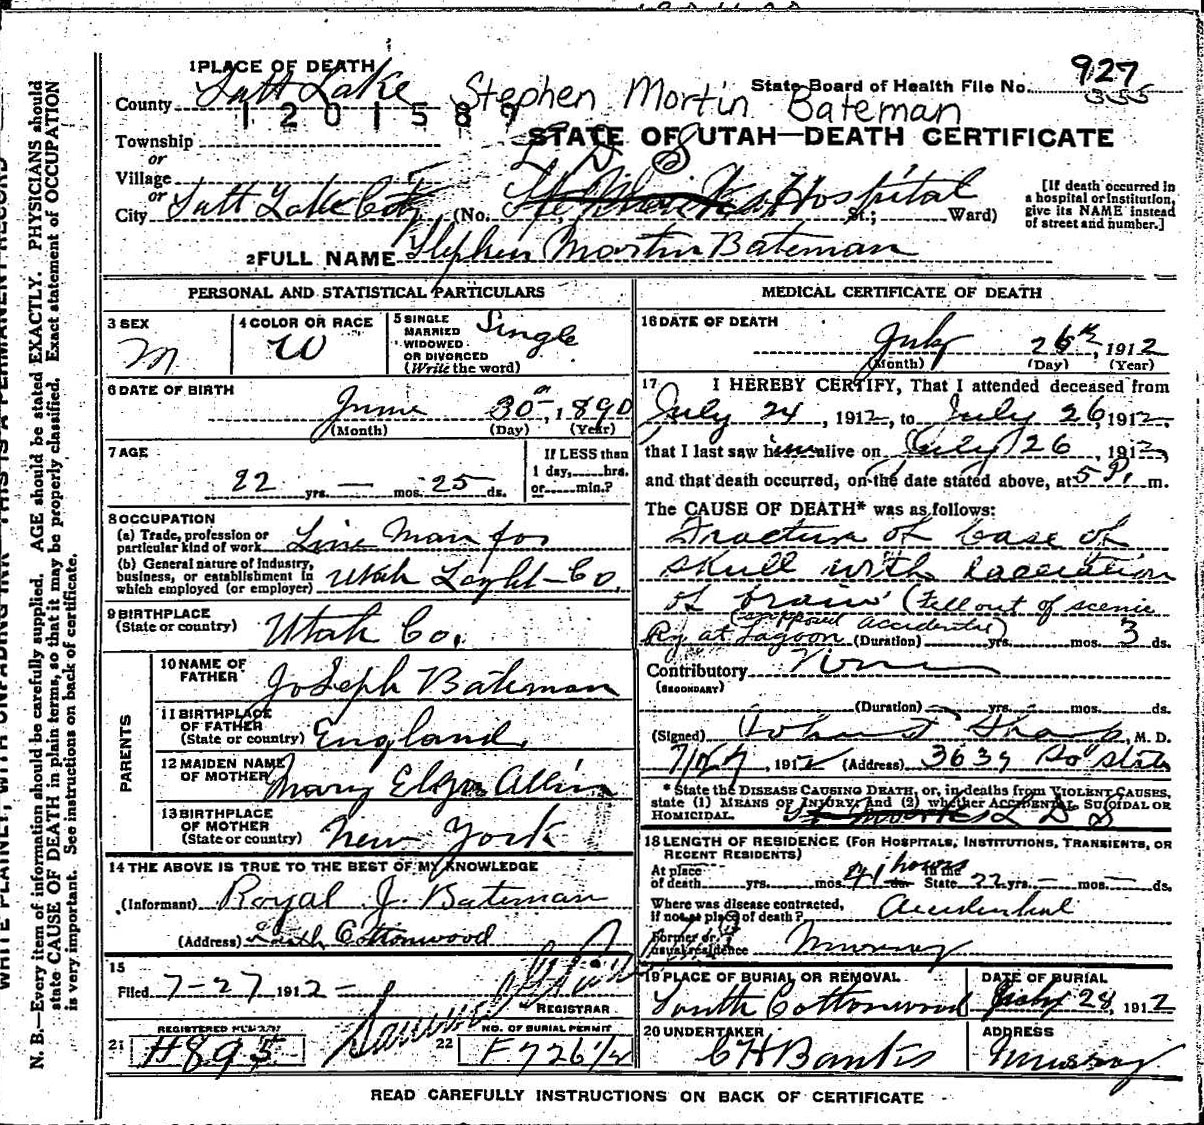 1 PLACE OF DEATH
County Salt Lake
Stephen Mortin Bateman
State Board of Health File No. 927
355
1201589
STATE OF UTAH—DEATH CERTIFICATE
Township
or
Village
or
City Salt Lake City (No. L D S Hospital St.; Ward)
[If death occurred in
a hospital or institution,
give its NAME instead
of street and number.]
2 FULL NAME Stephen Martin Bateman
PERSONAL AND STATISTICAL PARTICULARS
3 SEX M
4 COLOR OR RACE W
5 SINGLE
MARRIED
WIDOWED
OR DIVORCED
(Write the word)
Single
6 DATE OF BIRTH
June 30th, 1890
(Month) (Day) (Year)
7 AGE
22 yrs. — mos. 25 ds.
If LESS than
1 day, hrs.
or min.?
8 OCCUPATION
(a) Trade, profession or
particular kind of work Line Man for
(b) General nature of industry,
business, or establishment in
which employed (or employer) Utah Light Co.
9 BIRTHPLACE
(State or country) Utah Co.
PARENTS
10 NAME OF
FATHER Joseph Bateman
11 BIRTHPLACE
OF FATHER
(State or country) England
12 MAIDEN NAME
OF MOTHER Mary Eliza Allin
13 BIRTHPLACE
OF MOTHER
(State or country) New York
14 THE ABOVE IS TRUE TO THE BEST OF MY KNOWLEDGE
(Informant) Royal J. Bateman
(Address) South Cottonwood
15
Filed 7-27 1912
REGISTRAR
21 REGISTERED NUMBER
H895
22 NO. OF BURIAL PERMIT
F 726 1/2
MEDICAL CERTIFICATE OF DEATH
16 DATE OF DEATH
July 26th, 1912
(Month) (Day) (Year)
17 I HEREBY CERTIFY, That I attended deceased from
July 24, 1912, to July 26, 1912,
that I last saw him alive on July 26, 1912,
and that death occurred, on the date stated above, at 5 P. m.
The CAUSE OF DEATH* was as follows:
Fracture of base of
skull with laceration
of brain (Fell out of scenic
(supposed accidental)
Ry at Lagoon (Duration) yrs. mos. 3 ds.
Contributory None
(SECONDARY)
(Duration) yrs. mos. ds.
(Signed) M. D.
1912 (Address) So State
* State the DISEASE CAUSING DEATH, or, in deaths from VIOLENT CAUSES,
state (1) MEANS OF INJURY; and (2) whether ACCIDENTAL, SUICIDAL OR
HOMICIDAL.
L D S
18 LENGTH OF RESIDENCE (FOR HOSPITALS, INSTITUTIONS, TRANSIENTS, OR
RECENT RESIDENTS)
At place
of death yrs. mos. 41 hours ds. In the
State 22 yrs. — mos. — ds.
Where was disease contracted,
if not at place of death? Accidental
Former or
usual residence Murray
19 PLACE OF BURIAL OR REMOVAL
South Cottonwood
DATE OF BURIAL
July 28, 1912
20 UNDERTAKER
C H Banks
ADDRESS
Murray
READ CAREFULLY INSTRUCTIONS ON BACK OF CERTIFICATE
WRITE PLAINLY, WITH UNFADING INK—THIS IS A PERMANENT RECORD
N. B.—Every item of information should be carefully supplied. AGE should be stated EXACTLY. PHYSICIANS should
state CAUSE OF DEATH in plain terms, so that it may be properly classified. Exact statement of OCCUPATION
is very important. See instructions on back of certificate.